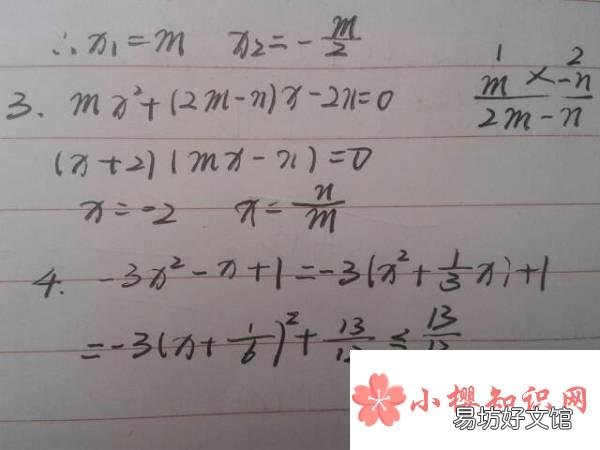 ∴ x₁ = m   x₂ = -m/2
3. mx² + (2m-n)x - 2n = 0
1   2
m × -n
2m - n
(x+2)(mx-n) = 0
x = -2   x = n/m
4. -3x² - x + 1 = -3(x² + 1/3 x) + 1
= -3(x + 1/6)² + 13/12 ≤ 13/12
小樱知识网
易坊好文馆